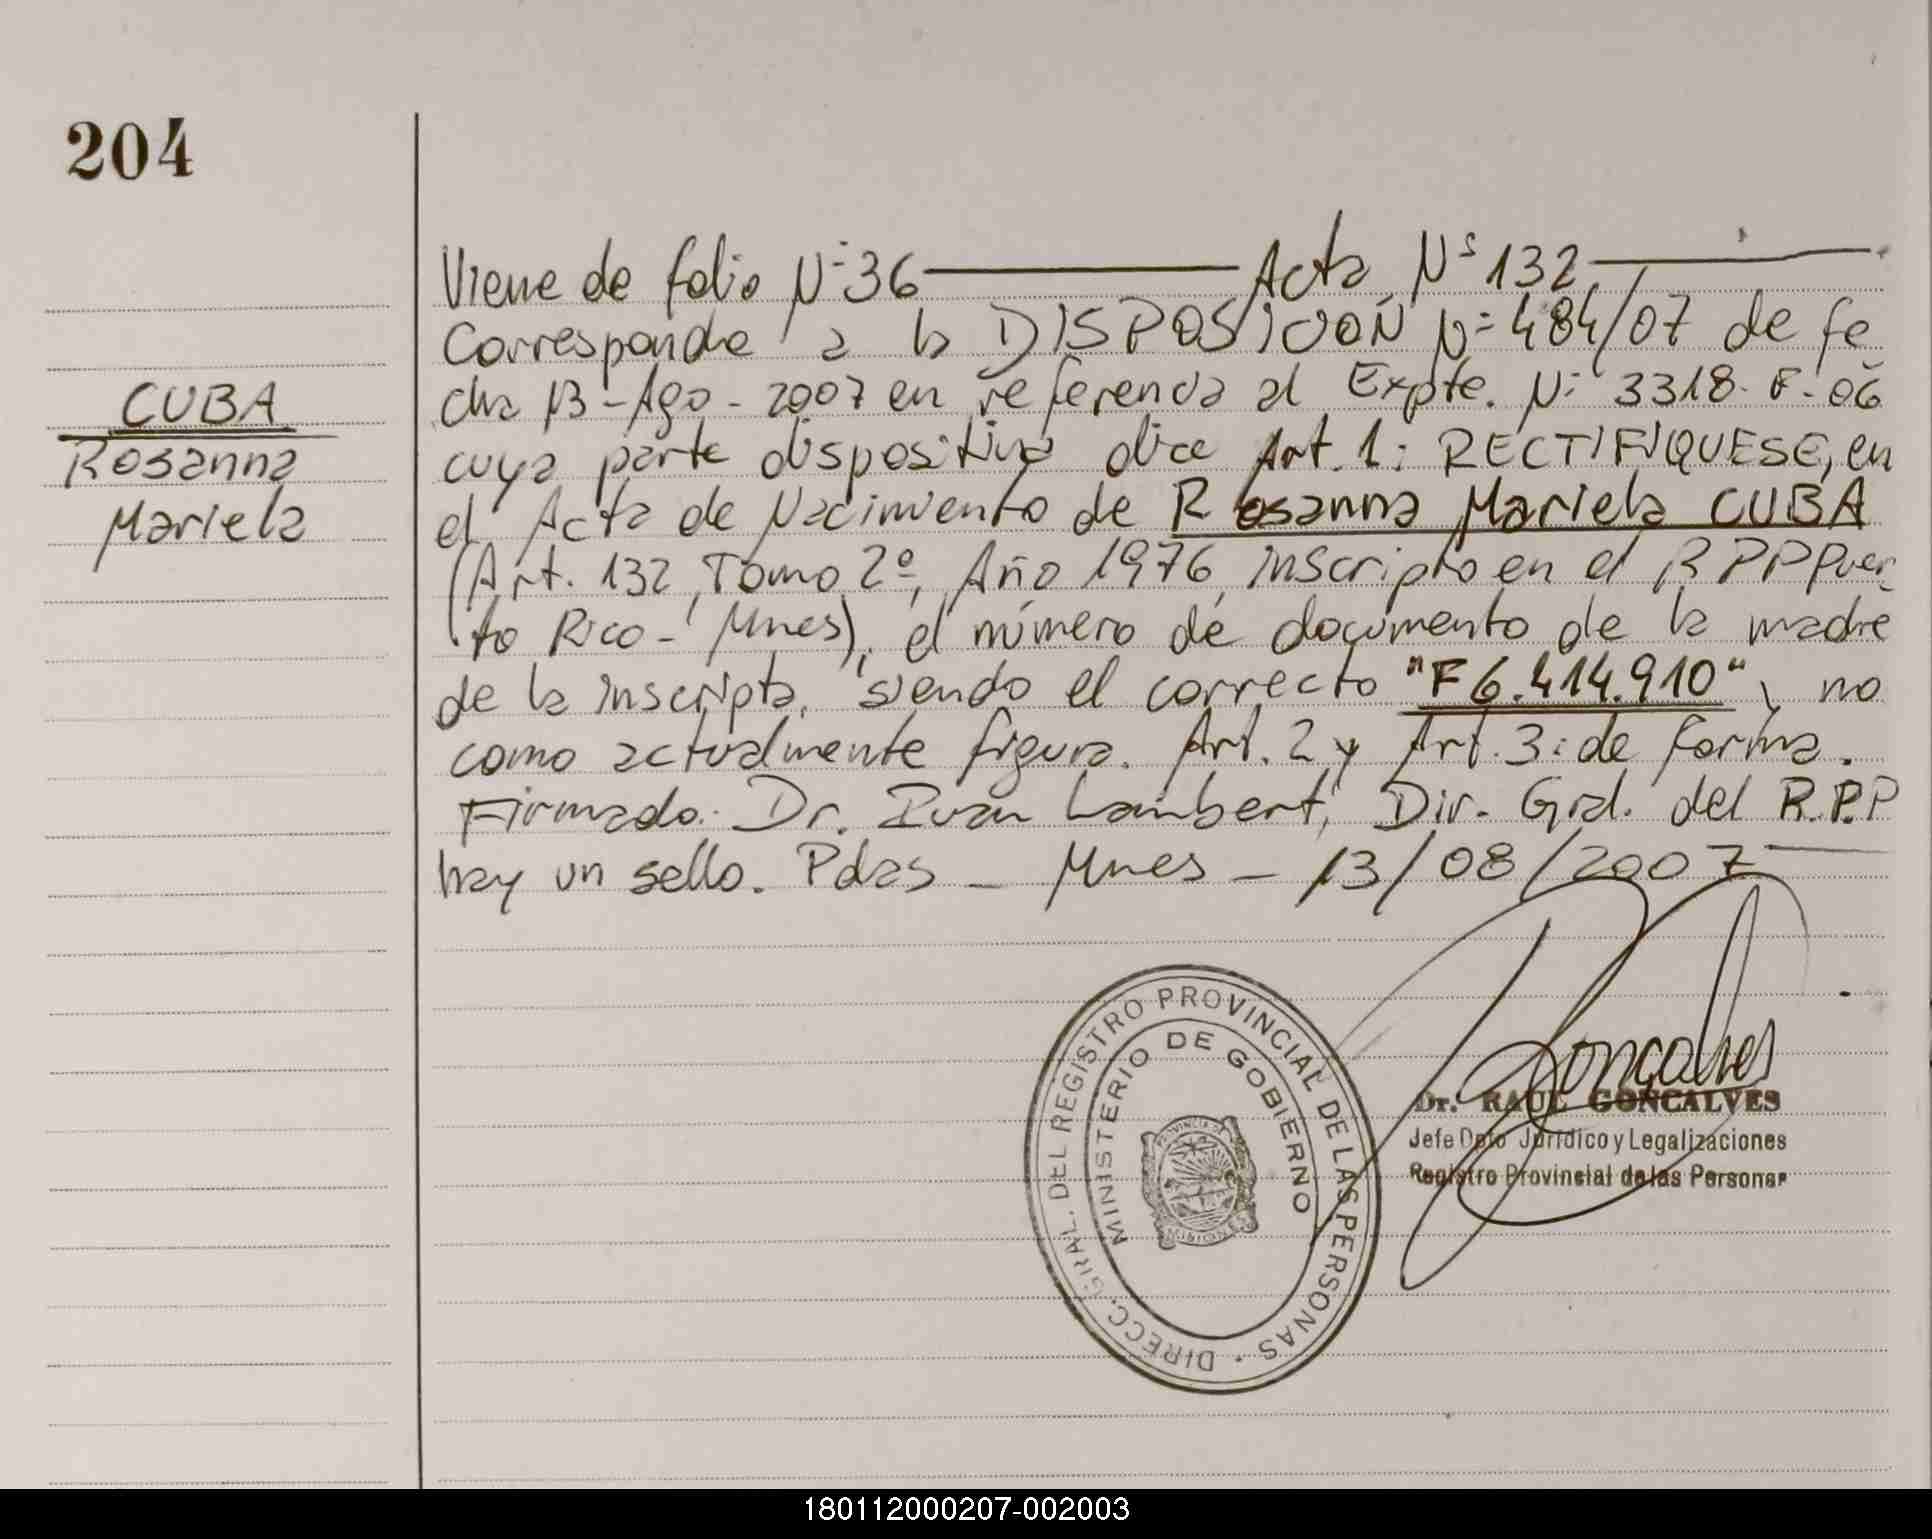 204
CUBA
Rosanna
Mariela
Viene de folio Nº 36 Acta Nº 132
Corresponde a la DISPOSICIÓN Nº 484/07 de fe
cha 13-Ago-2007 en referencia al Expte. Nº 3318-F-06
cuya parte dispositiva dice Art. 1: RECTIFIQUESE, en
el Acta de Nacimiento de Rosanna Mariela CUBA
(Art. 132, Tomo 2º, Año 1976, inscripto en el RPPPuer
to Rico - Mnes), el número de documento de la madre
de la inscripta, siendo el correcto "F6.414.910", no
como actualmente figura. Art. 2 y Art. 3: de forma.
Firmado: Dr. Ivan Lambert, Dir. Gral. del R.P.P
hay un sello. Pdas - Mnes - 13/08/2007
Goncalves
DIRECC. GRAL. DEL REGISTRO PROVINCIAL DE LAS PERSONAS
MINISTERIO DE GOBIERNO
PROVINCIA DE
MISIONES
Dr. RAUL GONCALVES
Jefe Dpto Jurídico y Legalizaciones
Registro Provincial de las Personas
180112000207-002003